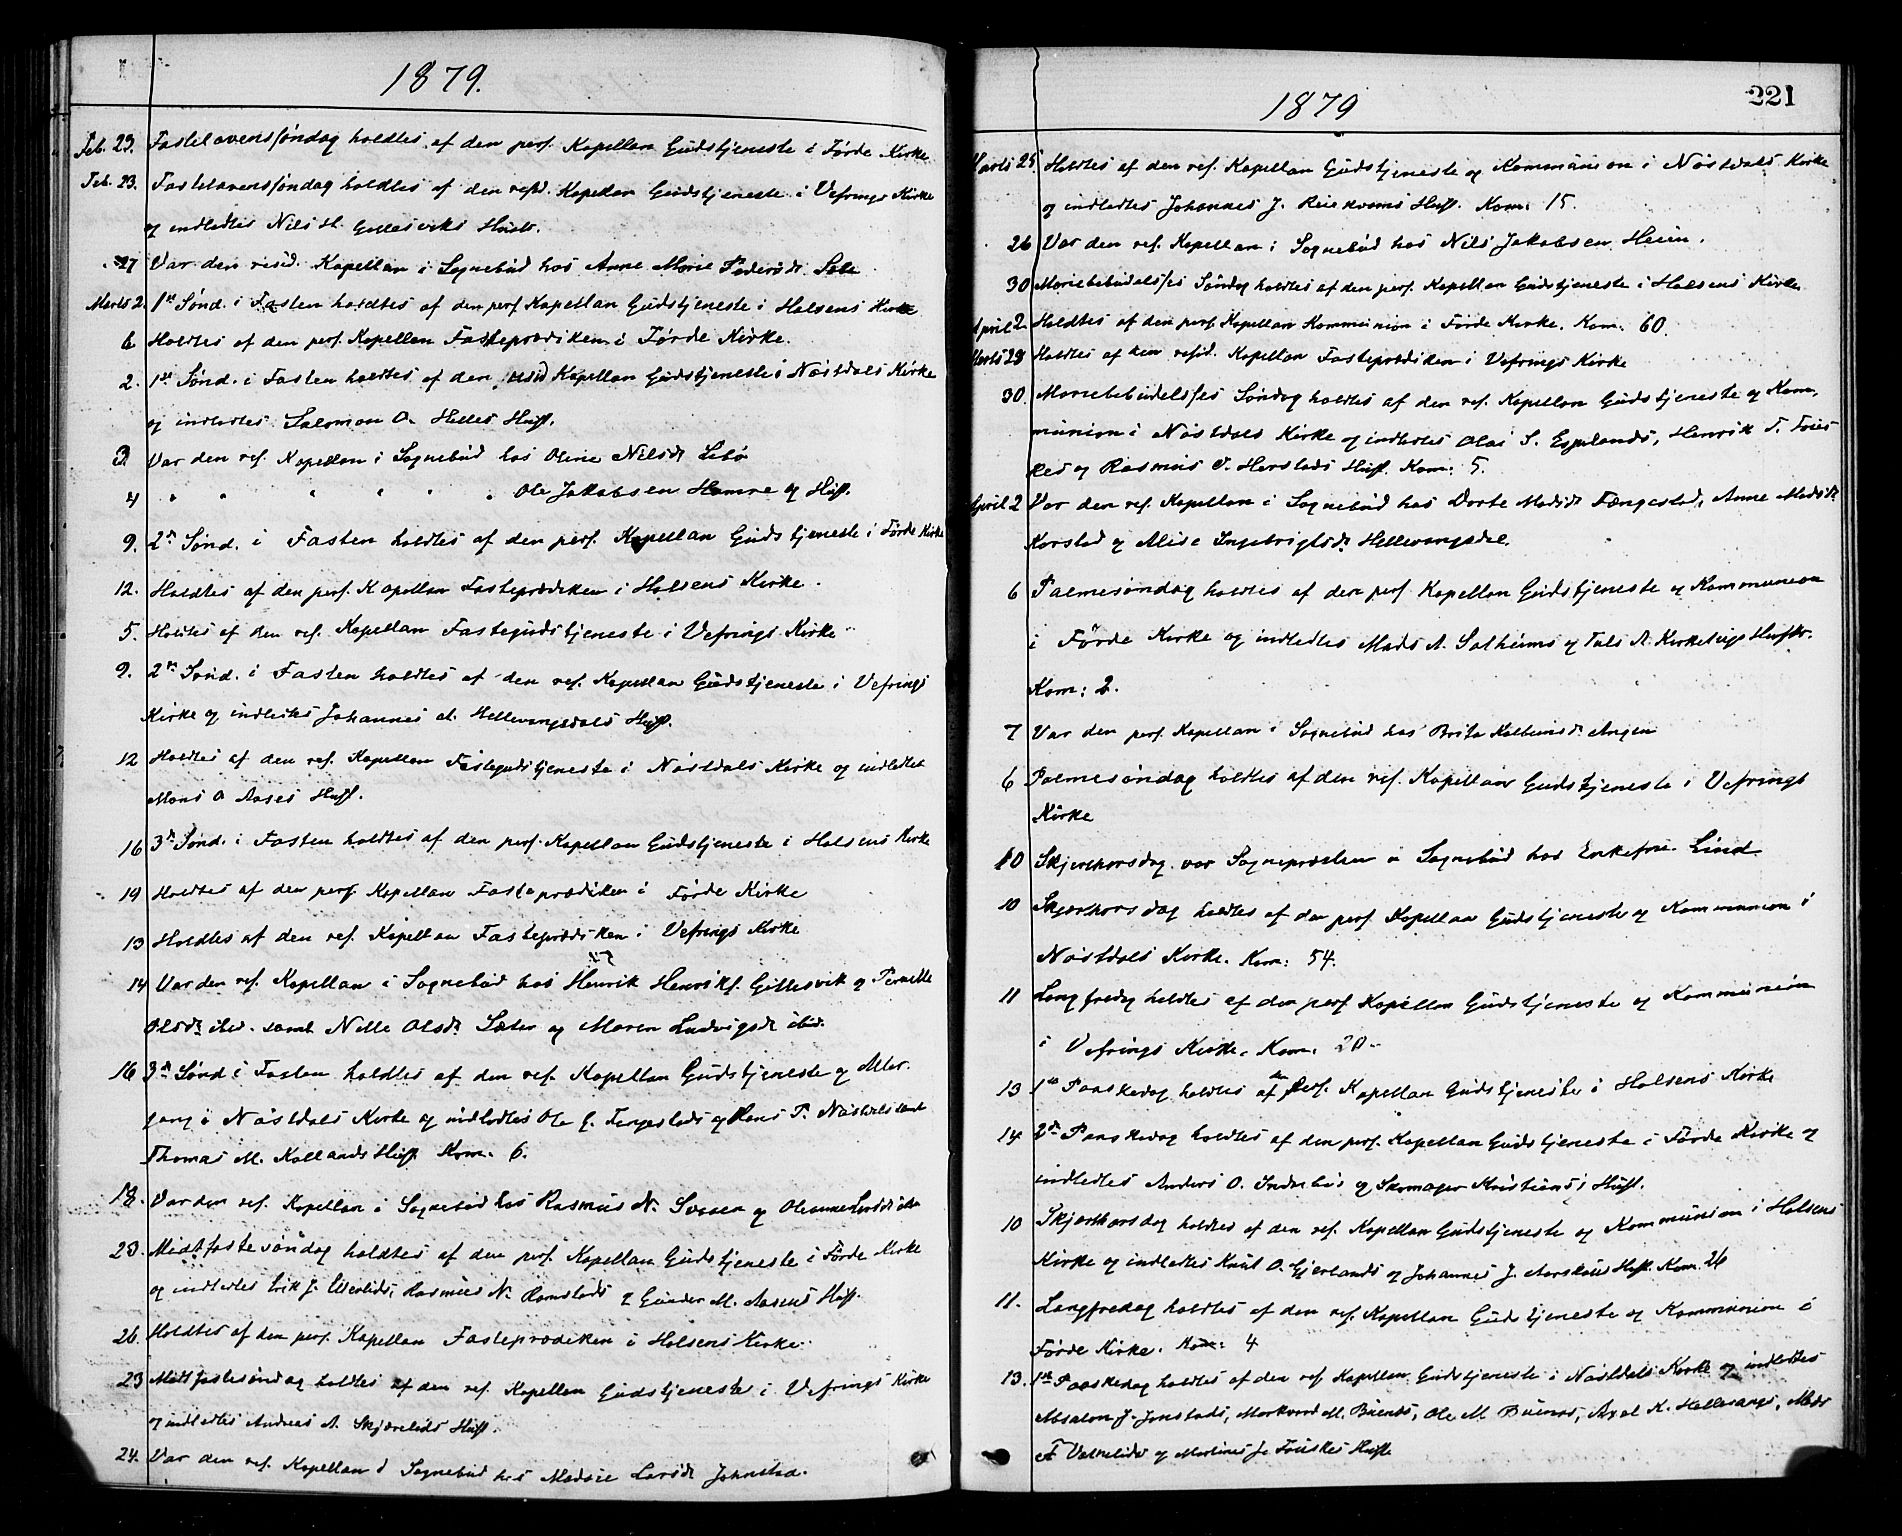 1879.
Feb. 23. Fastelavenssøndag holdtes af den pers. Kapellan Gudstjeneste i Førde Kirke
Feb. 23. Fastelavenssøndag holdtes af den resid. Kapellan Gudstjeneste i Vefrings Kirke
og indledtes Nils H. Gellesviks Hustr.
27 Var den resid. Kapellan i Sognebud hos Anne Marie Pedersdr.
Marts 2. 1ste Sønd. i Fasten holdtes af den pers. Kapellan Gudstjeneste i Holsens Kirke
6 Holdtes af den pers. Kapellan Fasteprædiken i Førde Kirke.
2. 1ste Sønd. i Fasten holdtes af den resid Kapellan Gudstjeneste i Nøstdals Kirke
og indledtes Salomon O. Helles Hust.
3 Var den res. Kapellan i Sognebud hos Oline Nilsdr
4 " " " " " " Ole Jakobsen Hamre og Hust.
9. 2den Sønd. i Fasten holdtes af den pers. Kapellan Gudstjeneste i Førde Kirke
12. Holdtes af den pers. Kapellan Fasteprædiken i Holsens Kirke.
5. Holdtes af den res. Kapellan Fastegudstjeneste i Vefrings Kirke
9. 2den Sønd. i Fasten holdtes af den res. Kapellan Gudstjeneste i Vefrings
Kirke og indledtes Johannes A. Hellevangsdals Hust.
12 Holdtes af den res. Kapellan Fastegudstjeneste i Nøstdals Kirke og indledtes
Mons O Aases Hust.
16 3die Sønd. i Fasten holdtes af den pers. Kapellan Gudstjeneste i Holsens Kirke
19 Holdtes af den pers. Kapellan Fasteprædiken i Førde Kirke
13 Holdtes af den res. Kapellan Fasteprædiken i Vefrings Kirke
14 Var den res. Kapellan i Sognebud hos Henrik Henriks. Gellesvik og Pernille
Olsdr. ibid. samt Nille Olsdr. Sæter og Maren Ludvigsdr ibid.
16 3die Sønd i Fasten holdtes af den res. Kapellan Gudstjeneste og Alter-
gang i Nøstdals Kirke og indledtes Ole G. Fengestads og Hans P. Nøstdals samt
Thomas M. Kallands Hust. Kom. 6.
18. Var den res. Kapellan i Sognebud hos Rasmus N.
23. Midtfastesøndag holdtes af den pers. Kapellan Gudstjeneste i Førde Kirke
og indledtes Erik J. Rasmus N. Ramstads og Gunder M. Aasens Hust.
26. Holdtes af den pers. Kapellan Fasteprædiken i Holsens Kirke.
23 Midtfastesøndag holdtes af den res. Kapellan Gudstjeneste i Vefrings Kirke
og indledtes Andreas A. Skjærelids Hust.
24. Var den res. Kapellan i Sognebud hos Larsdr Johnstad.
1879 221
Marts 25. Holdtes af den res. Kapellan Gudstjeneste og Kommunion i Nøstdals Kirke
og indledtes Johannes J. Reiekvams Hust. Kom. 15.
26 Var den res. Kapellan i Sognebud hos Nils Jakobsen Heim.
30 Mariebebudelses Søndag holdtes af den pers. Kapellan Gudstjeneste i Holsens Kirke
April 2. Holdtes af den pers. Kapellan Kommunion i Førde Kirke. Kom. 60.
Marts 28 Holdtes af den resid. Kapellan Fasteprædiken i Vefrings Kirke
30. Mariebebudelses Søndag holdtes af den res. Kapellan Gudstjeneste og Kom-
munion i Nøstdals Kirke og indledtes Olai S. Espelands, Henrik T.
og Rasmus Herstads Hust. Kom: 5.
April 2 Var den res. Kapellan i Sognebud hos Dorte Madsdr. Fængestad, Anne Madsdr.
Korstad og Alise Ingebrigtsdr. Hellevangsdal.
6 Palmesøndag holdtes af den pers. Kapellan Gudstjeneste og Kommunion
i Førde Kirke og indledtes Mads A. Solheims og A. Hustr.
Kom: 2.
7 Var den pers. Kapellan i Sognebud hos Brita Angen
6 Palmesøndag holdtes af den res. Kapellan Gudstjeneste i Vefrings
Kirke
10 Skjærthorsdag var Sognepræsten i Sognebud hos Enkefru Lind
10 Skjærthorsdag holdtes af den pers. Kapellan Gudstjeneste og Kommunion i
Nøstdals Kirke. Kom: 54.
11 Langfredag holdtes af den pers. Kapellan Gudstjeneste og Kommunion
i Vefrings Kirke. Kom. 20.
13 1ste Paaskedag holdtes af den pers. Kapellan Gudstjeneste i Holsens Kirke
14 2den Paaskedag holdtes af den pers. Kapellan Gudstjeneste i Førde Kirke og
indledtes Anders O. og Skomager Kristians Hust.
10 Skjærthorsdag holdtes af den res. Kapellan Gudstjeneste og Kommunion i Holsens
Kirke og indledtes Knut O. Gjerlands og Johannes J. Hust. Kom. 26
11. Langfredag holdtes af den res. Kapellan Gudstjeneste og Kommunion i
Førde Kirke. Kom: 4
13. 1ste Paaskedag holdtes af den res Kapellan Gudstjeneste i Nøstdals Kirke og indledtes
Absalon J. Jonstads, M. Ole M. K. Hellevangs, Mads
A og Martines J. Hust.